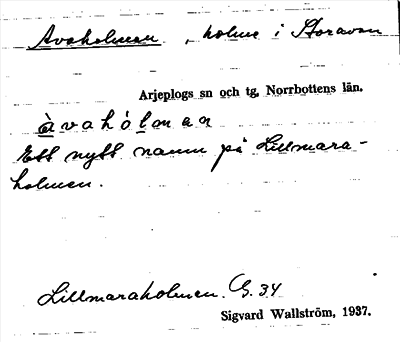 Avaholmen, holme i Storavan
Arjeplogs sn och tg, Norrbottens län.
àvahólman
Ett nytt namn på Lillmara-
holmen.
Lillmaraholmen. G. 34
Sigvard Wallström, 1937.